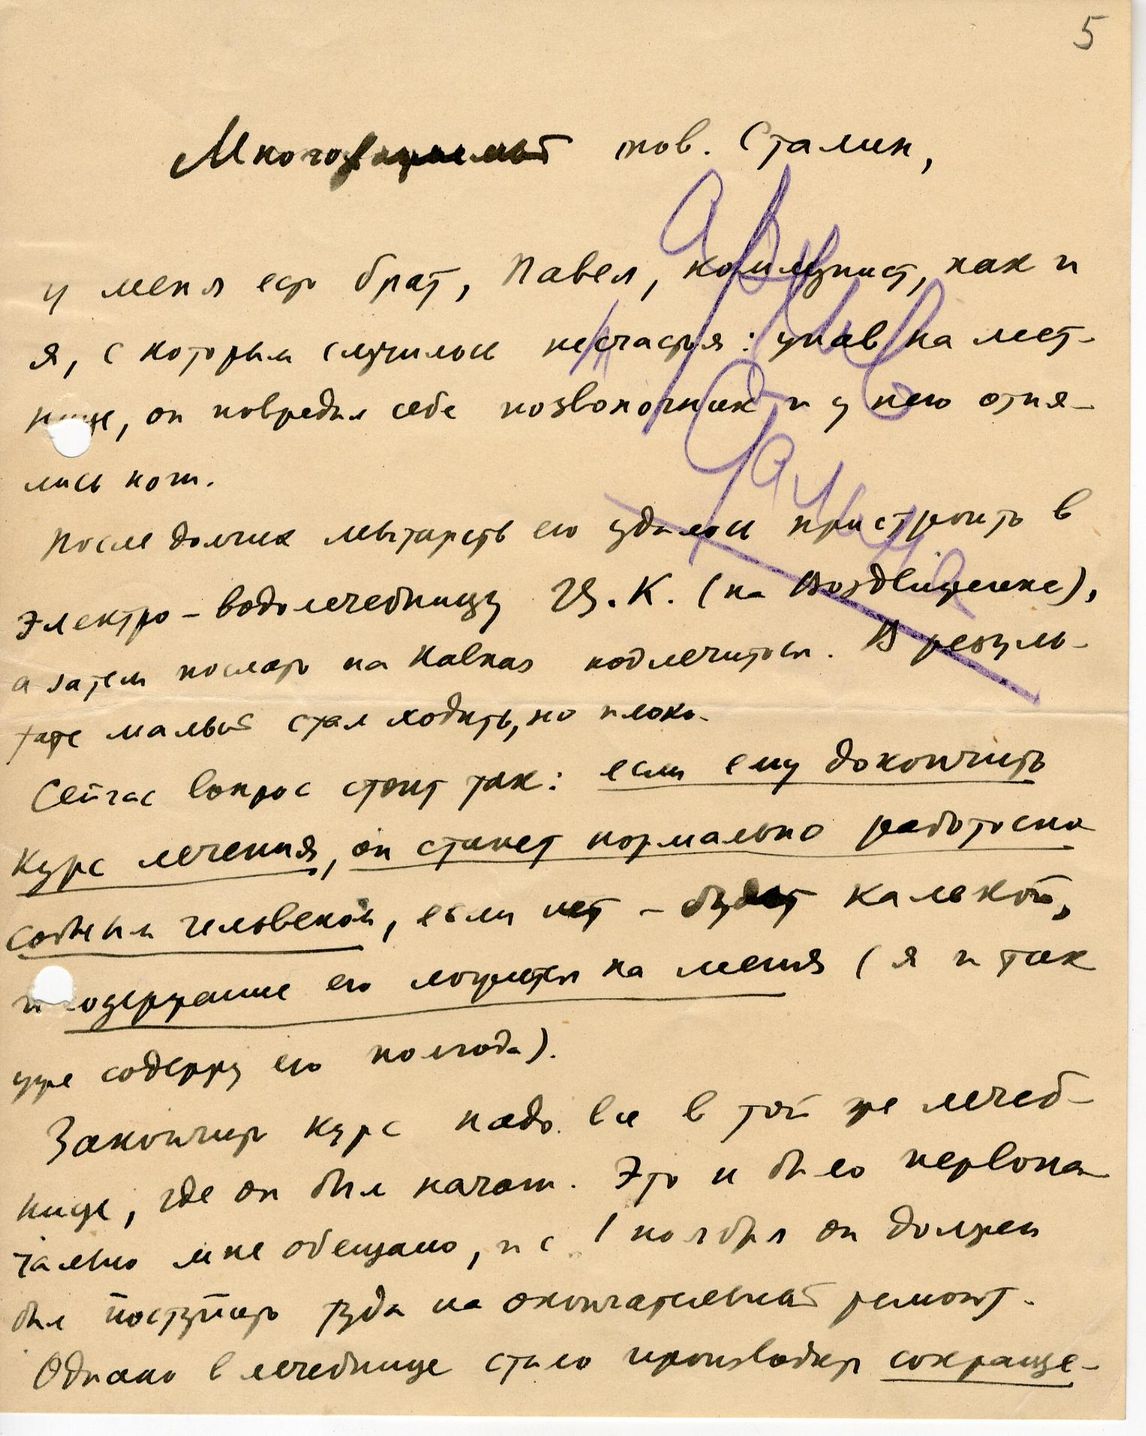 5
Многоуважаемый тов. Сталин,
у меня есть брат, Павел, коммунист, как и
я, с которым случилось несчастья: упав на лест-
нице, он повредил себе позвоночник и у него отня-
лись ноги.
После долгих мытарств его удалось пристроить в
Электро-водолечебницу Ц.К. (на Воздвиженке),
а затем послать на Кавказ подлечиться. В резуль-
тате малый стал ходить, но плохо.
Сейчас вопрос стоит так: если ему докончить
курс лечения, он станет нормально работоспо
собным человеком, если нет – будет калекой,
и содержание его ложится на меня (я и так
уже содержу его полгода).
Закончить курс надо в той же лечеб-
нице, где он был начат. Это и было первона
чально мне обещано, и с 1 ноября он должен
был поступить туда на окончательный ремонт.
Однако в лечебнице стало производить сокраще-